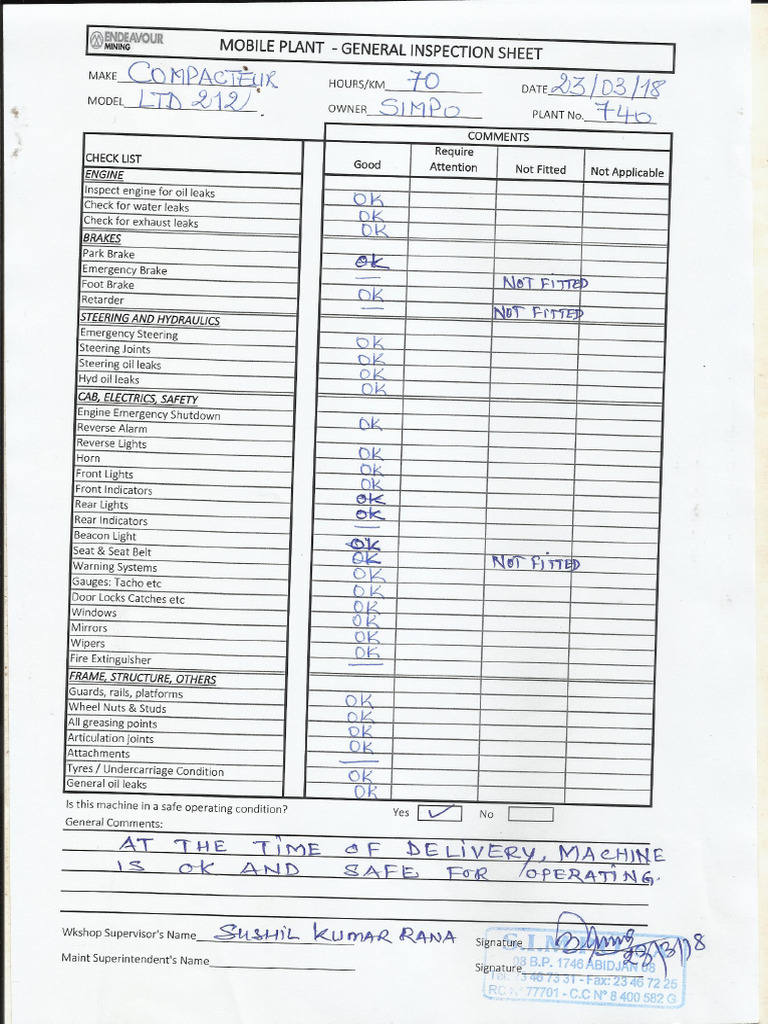 ENDEAVOUR
MINING
MOBILE PLANT - GENERAL INSPECTION SHEET
MAKE COMPACTEUR HOURS/KM 70 DATE 23/03/18
MODEL LTD 212 OWNER SIMPO PLANT No. 740
COMMENTS
CHECK LIST Good Require Attention Not Fitted Not Applicable
ENGINE
Inspect engine for oil leaks OK
Check for water leaks OK
Check for exhaust leaks OK
BRAKES
Park Brake OK
Emergency Brake — NOT FITTED
Foot Brake OK
Retarder — NOT FITTED
STEERING AND HYDRAULICS
Emergency Steering OK
Steering Joints OK
Steering oil leaks OK
Hyd oil leaks OK
CAB, ELECTRICS, SAFETY
Engine Emergency Shutdown OK
Reverse Alarm
Reverse Lights OK
Horn OK
Front Lights OK
Front Indicators OK
Rear Lights OK
Rear Indicators —
Beacon Light OK
Seat & Seat Belt OK NOT FITTED
Warning Systems OK
Gauges: Tacho etc OK
Door Locks Catches etc OK
Windows OK
Mirrors OK
Wipers OK
Fire Extinguisher —
FRAME, STRUCTURE, OTHERS
Guards, rails, platforms OK
Wheel Nuts & Studs OK
All greasing points OK
Articulation joints OK
Attachments —
Tyres / Undercarriage Condition OK
General oil leaks OK
Is this machine in a safe operating condition? Yes ✓ No
General Comments:
AT THE TIME OF DELIVERY, MACHINE
IS OK AND SAFE FOR OPERATING.
Wkshop Supervisor's Name SUSHIL KUMAR RANA Signature 23/3/18
Maint Superintendent's Name Signature
08 B.P. 1746 ABIDJAN 08
46 73 31 - Fax: 23 46 72 25
N° 77701 - C.C N° 8 400 582 G